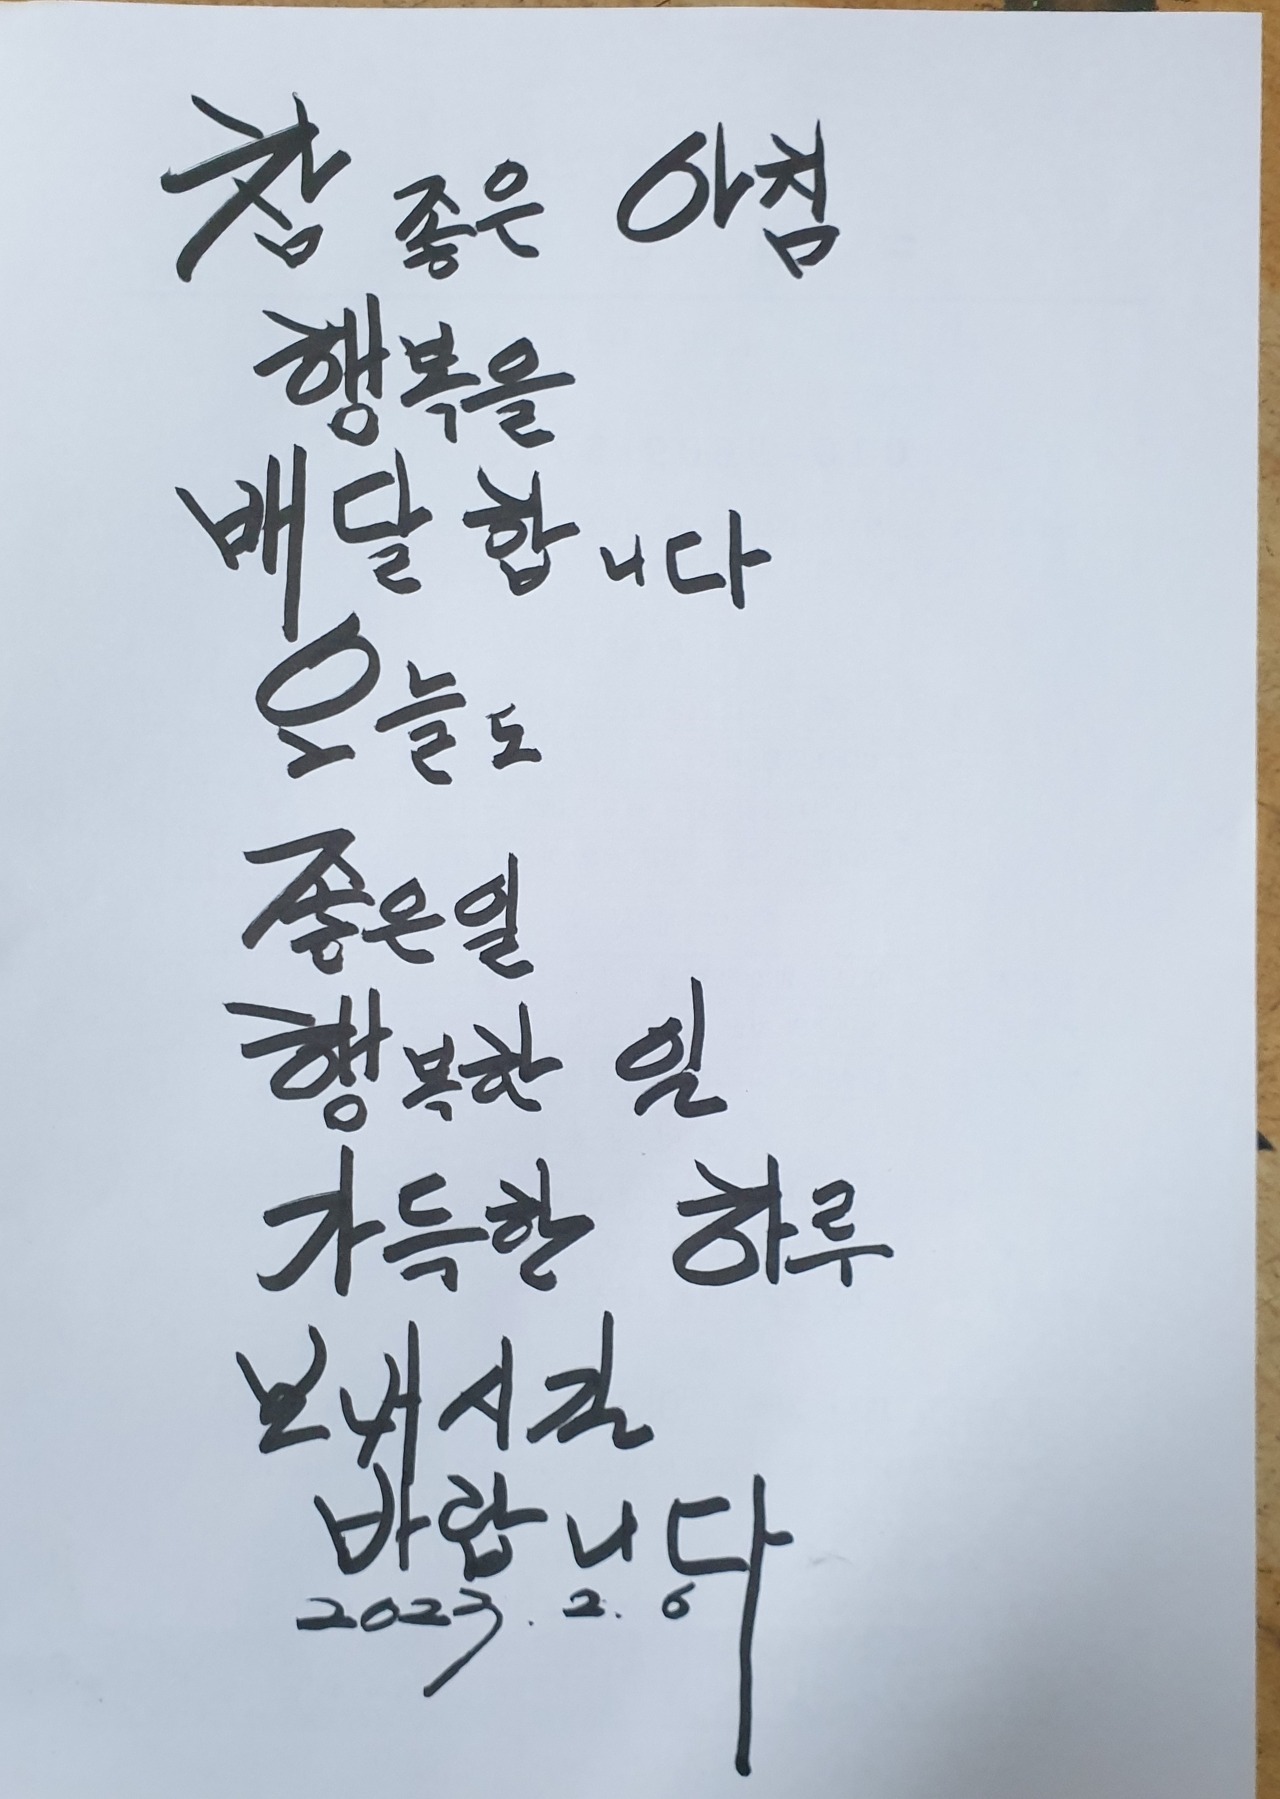 참 좋은 아침
행복을
배달 합니다
오늘도
좋은일
행복한 일
가득한 하루
보내시길
바랍니다
2023. 2. 6